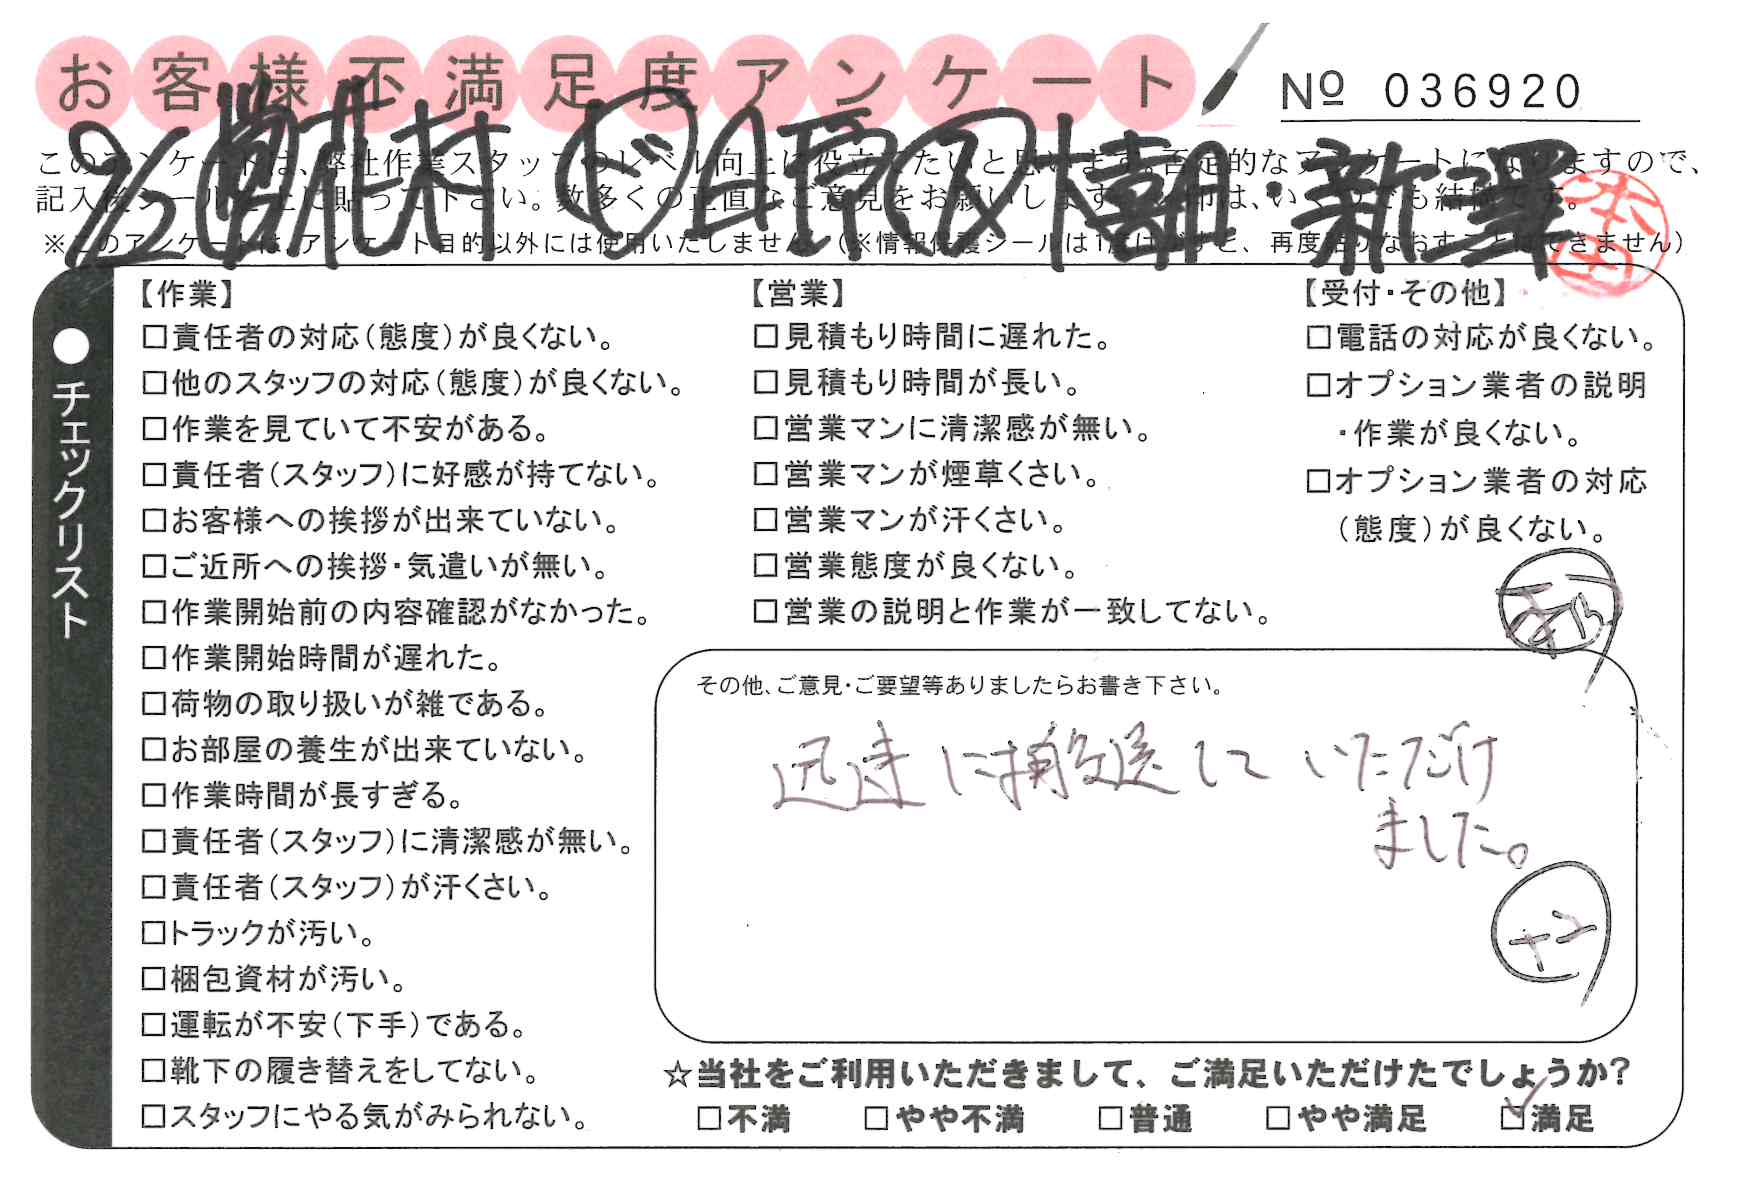 お客様不満足度アンケート
No 036920
このアンケートは、弊社作業スタッフのレベル向上に役立てたいと思います。否定的なアンケートになりますので、
記入後シールを上に貼って下さい。数多くの正直なご意見をお願いします。レ印は、いくつでも結構です。
※このアンケートは、アンケート目的以外には使用いたしません。(※情報保護シールは1度はがすと、再度貼りなおすことはできません)
2/2
・新澤
●チェックリスト
【作業】
□責任者の対応(態度)が良くない。
□他のスタッフの対応(態度)が良くない。
□作業を見ていて不安がある。
□責任者(スタッフ)に好感が持てない。
□お客様への挨拶が出来ていない。
□ご近所への挨拶・気遣いが無い。
□作業開始前の内容確認がなかった。
□作業開始時間が遅れた。
□荷物の取り扱いが雑である。
□お部屋の養生が出来ていない。
□作業時間が長すぎる。
□責任者(スタッフ)に清潔感が無い。
□責任者(スタッフ)が汗くさい。
□トラックが汚い。
□梱包資材が汚い。
□運転が不安(下手)である。
□靴下の履き替えをしてない。
□スタッフにやる気がみられない。
【営業】
□見積もり時間に遅れた。
□見積もり時間が長い。
□営業マンに清潔感が無い。
□営業マンが煙草くさい。
□営業マンが汗くさい。
□営業態度が良くない。
□営業の説明と作業が一致してない。
【受付・その他】
□電話の対応が良くない。
□オプション業者の説明
・作業が良くない。
□オプション業者の対応
(態度)が良くない。
その他、ご意見・ご要望等ありましたらお書き下さい。
迅速に搬送していただけ
ました。
+2
☆当社をご利用いただきまして、ご満足いただけたでしょうか?
□不満 □やや不満 □普通 □やや満足 ☑満足